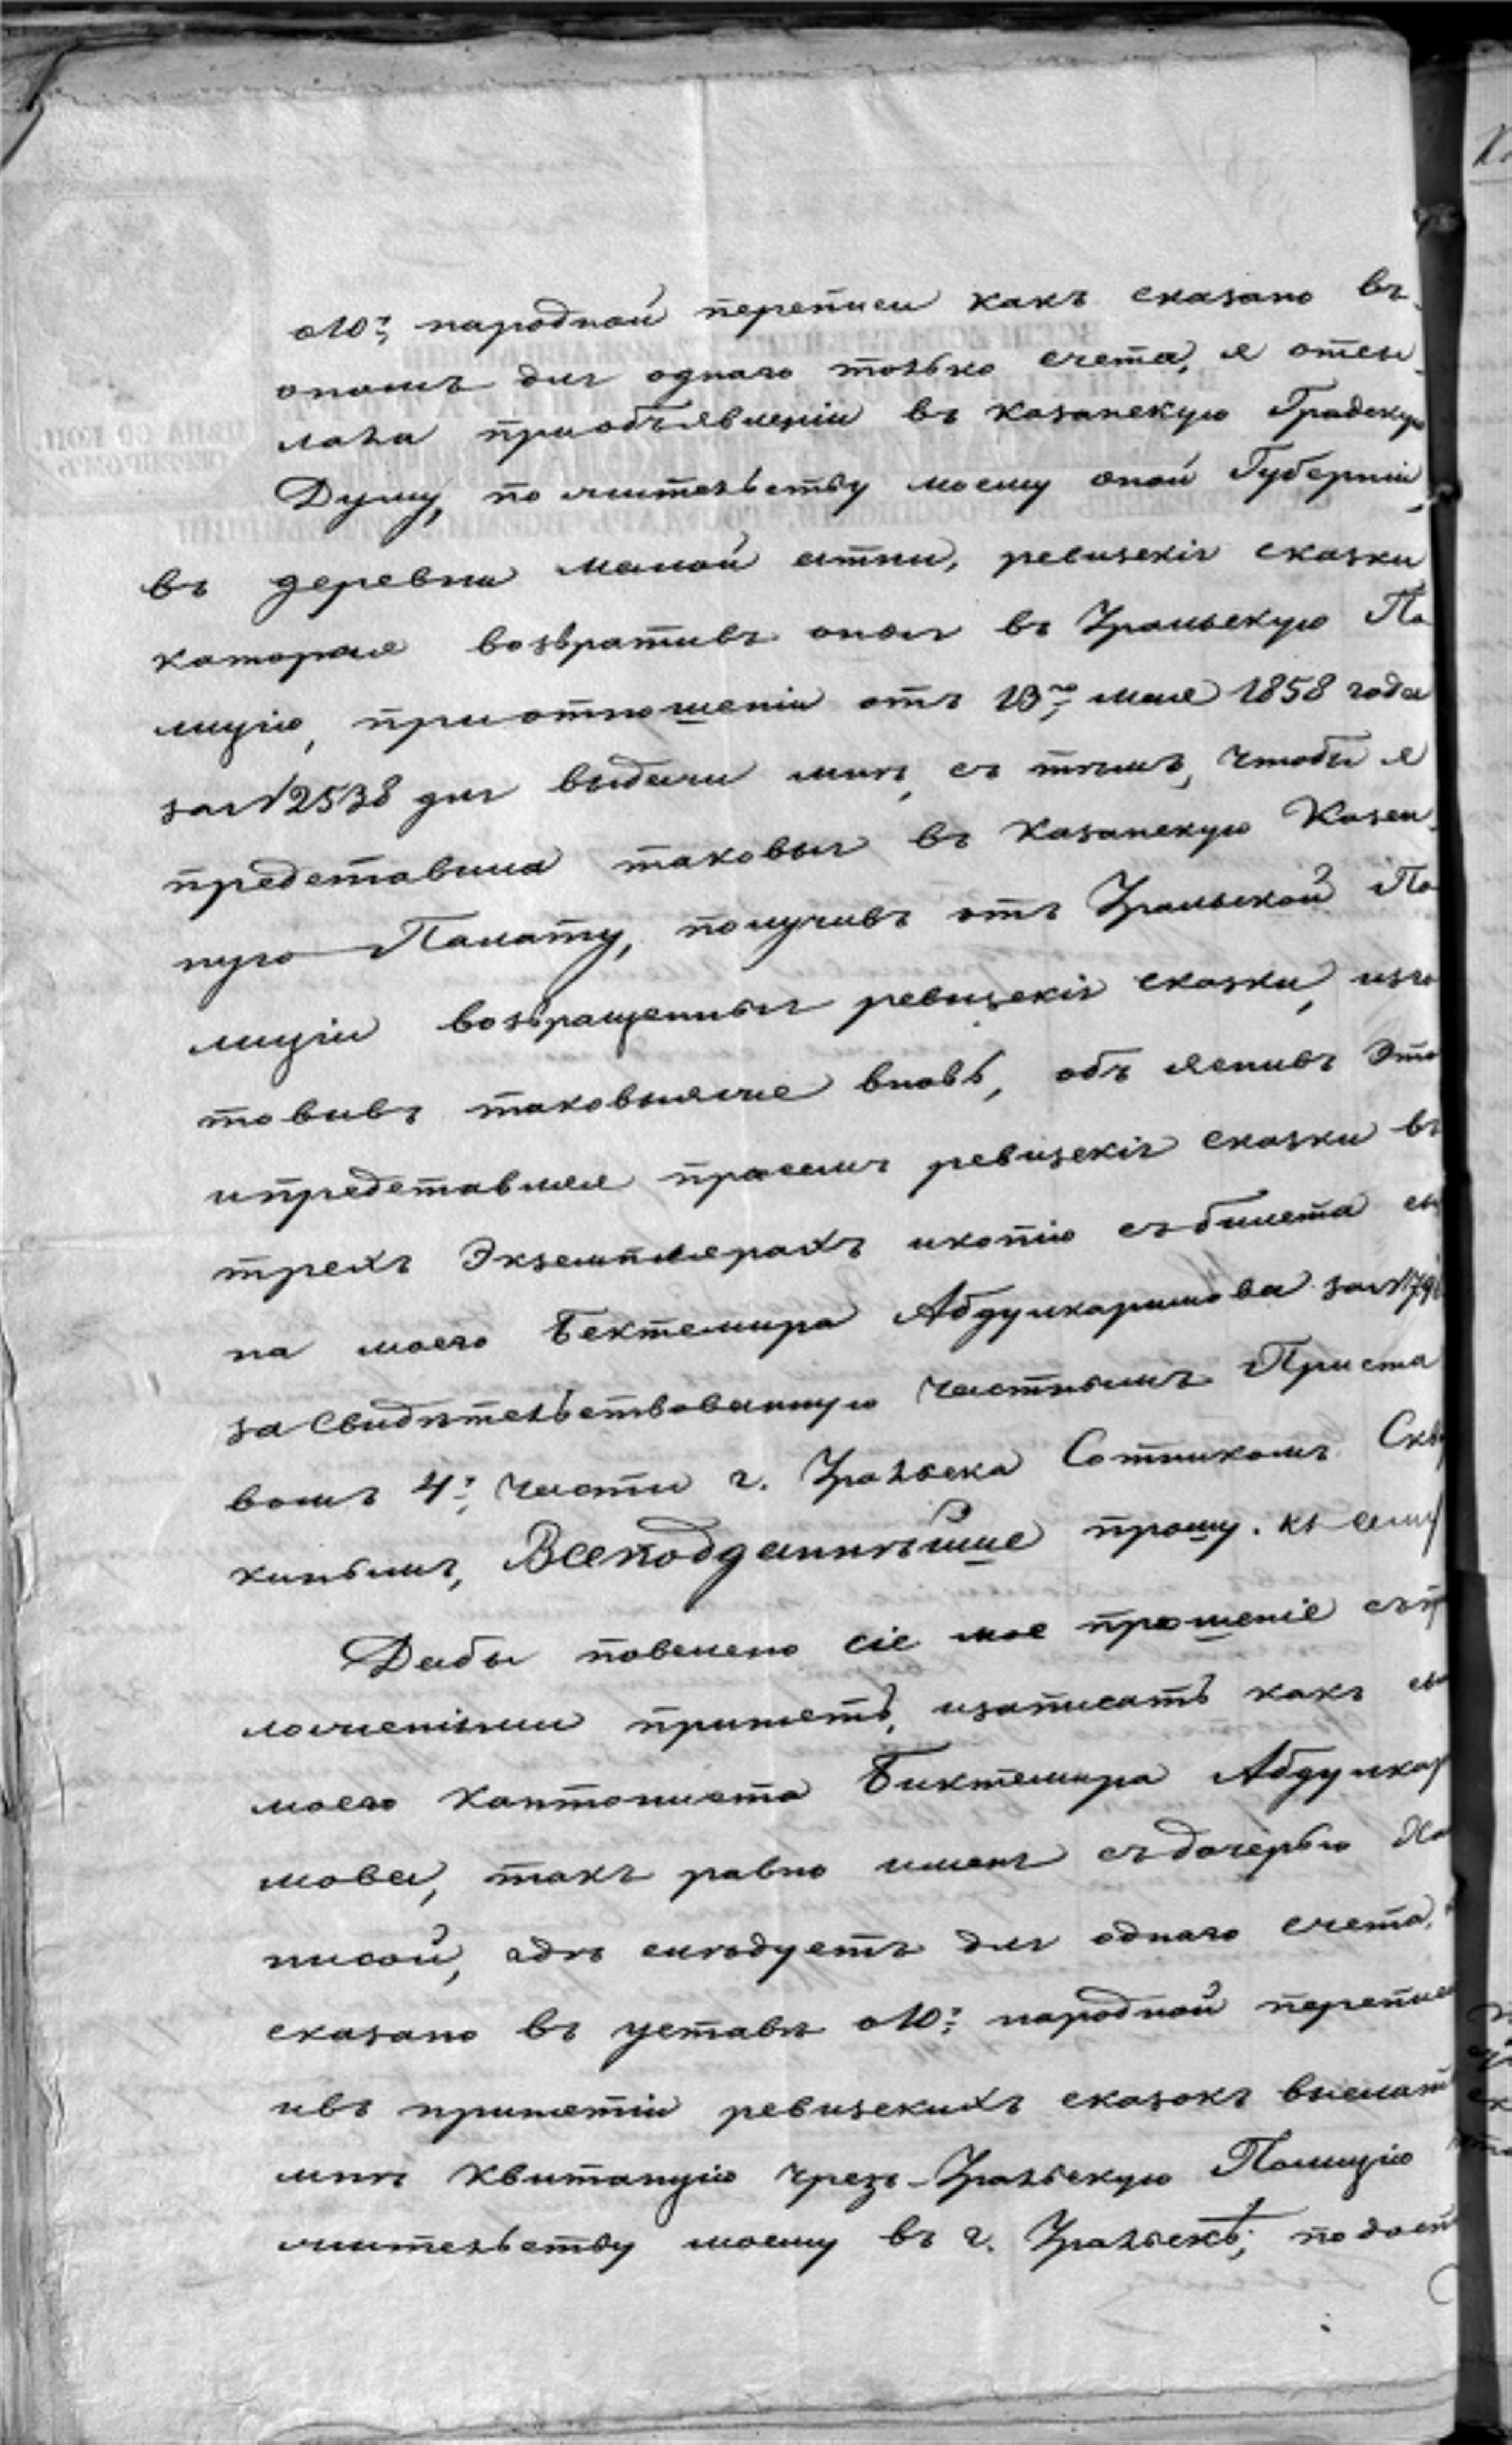 о 10й, народной переписи какъ сказано въ
ономъ для однаго только счета, я отсы
лала приобъявленіи въ Казанскую Градскую
Думу, по жительству моему оной Губерніи,
въ деревни малой атни, ревизскія сказки
каторая возвративъ оныя въ Уральскую По
лицію, приотношеніи отъ 13го, мая 1858 года
за №2538 для выдачи мнѣ, съ тѣмъ, чтобы я
представила таковыя въ Казанскую Казен
ную Палату, получивъ отъ Уральской По
лиціи возвращенныя ревизскія сказки, изго
товивъ таковыяже вновь, объ яснивъ это
ипредставляя присемъ ревизскія сказки въ
трехъ Экземплярахъ икопію събилета сы
на моего Бектемира Абдулкаримова за №79
за Свидѣтельствованную Частнымъ Приста
вомъ 4й, части г. Уральска Сотникомъ
кинымъ, Всеподданнѣйше прошу. къ сему
Дабы повелено сіе мое прошеніе съп
ложеніями принять, изаписать какъ сы
моего кантониста Биктемира Абдулкар
мова, такъ равно именя съдочерью Ха
нисой, гдѣ слѣдуетъ для однаго счета,
сказано въ уставѣ о 10й, народной перепис
ивъ принятіи ревизскихъ сказокъ выслат
мнѣ квитанцію чрезъ Уральскую Полицію
жительству моему въ г. Уральскѣ;